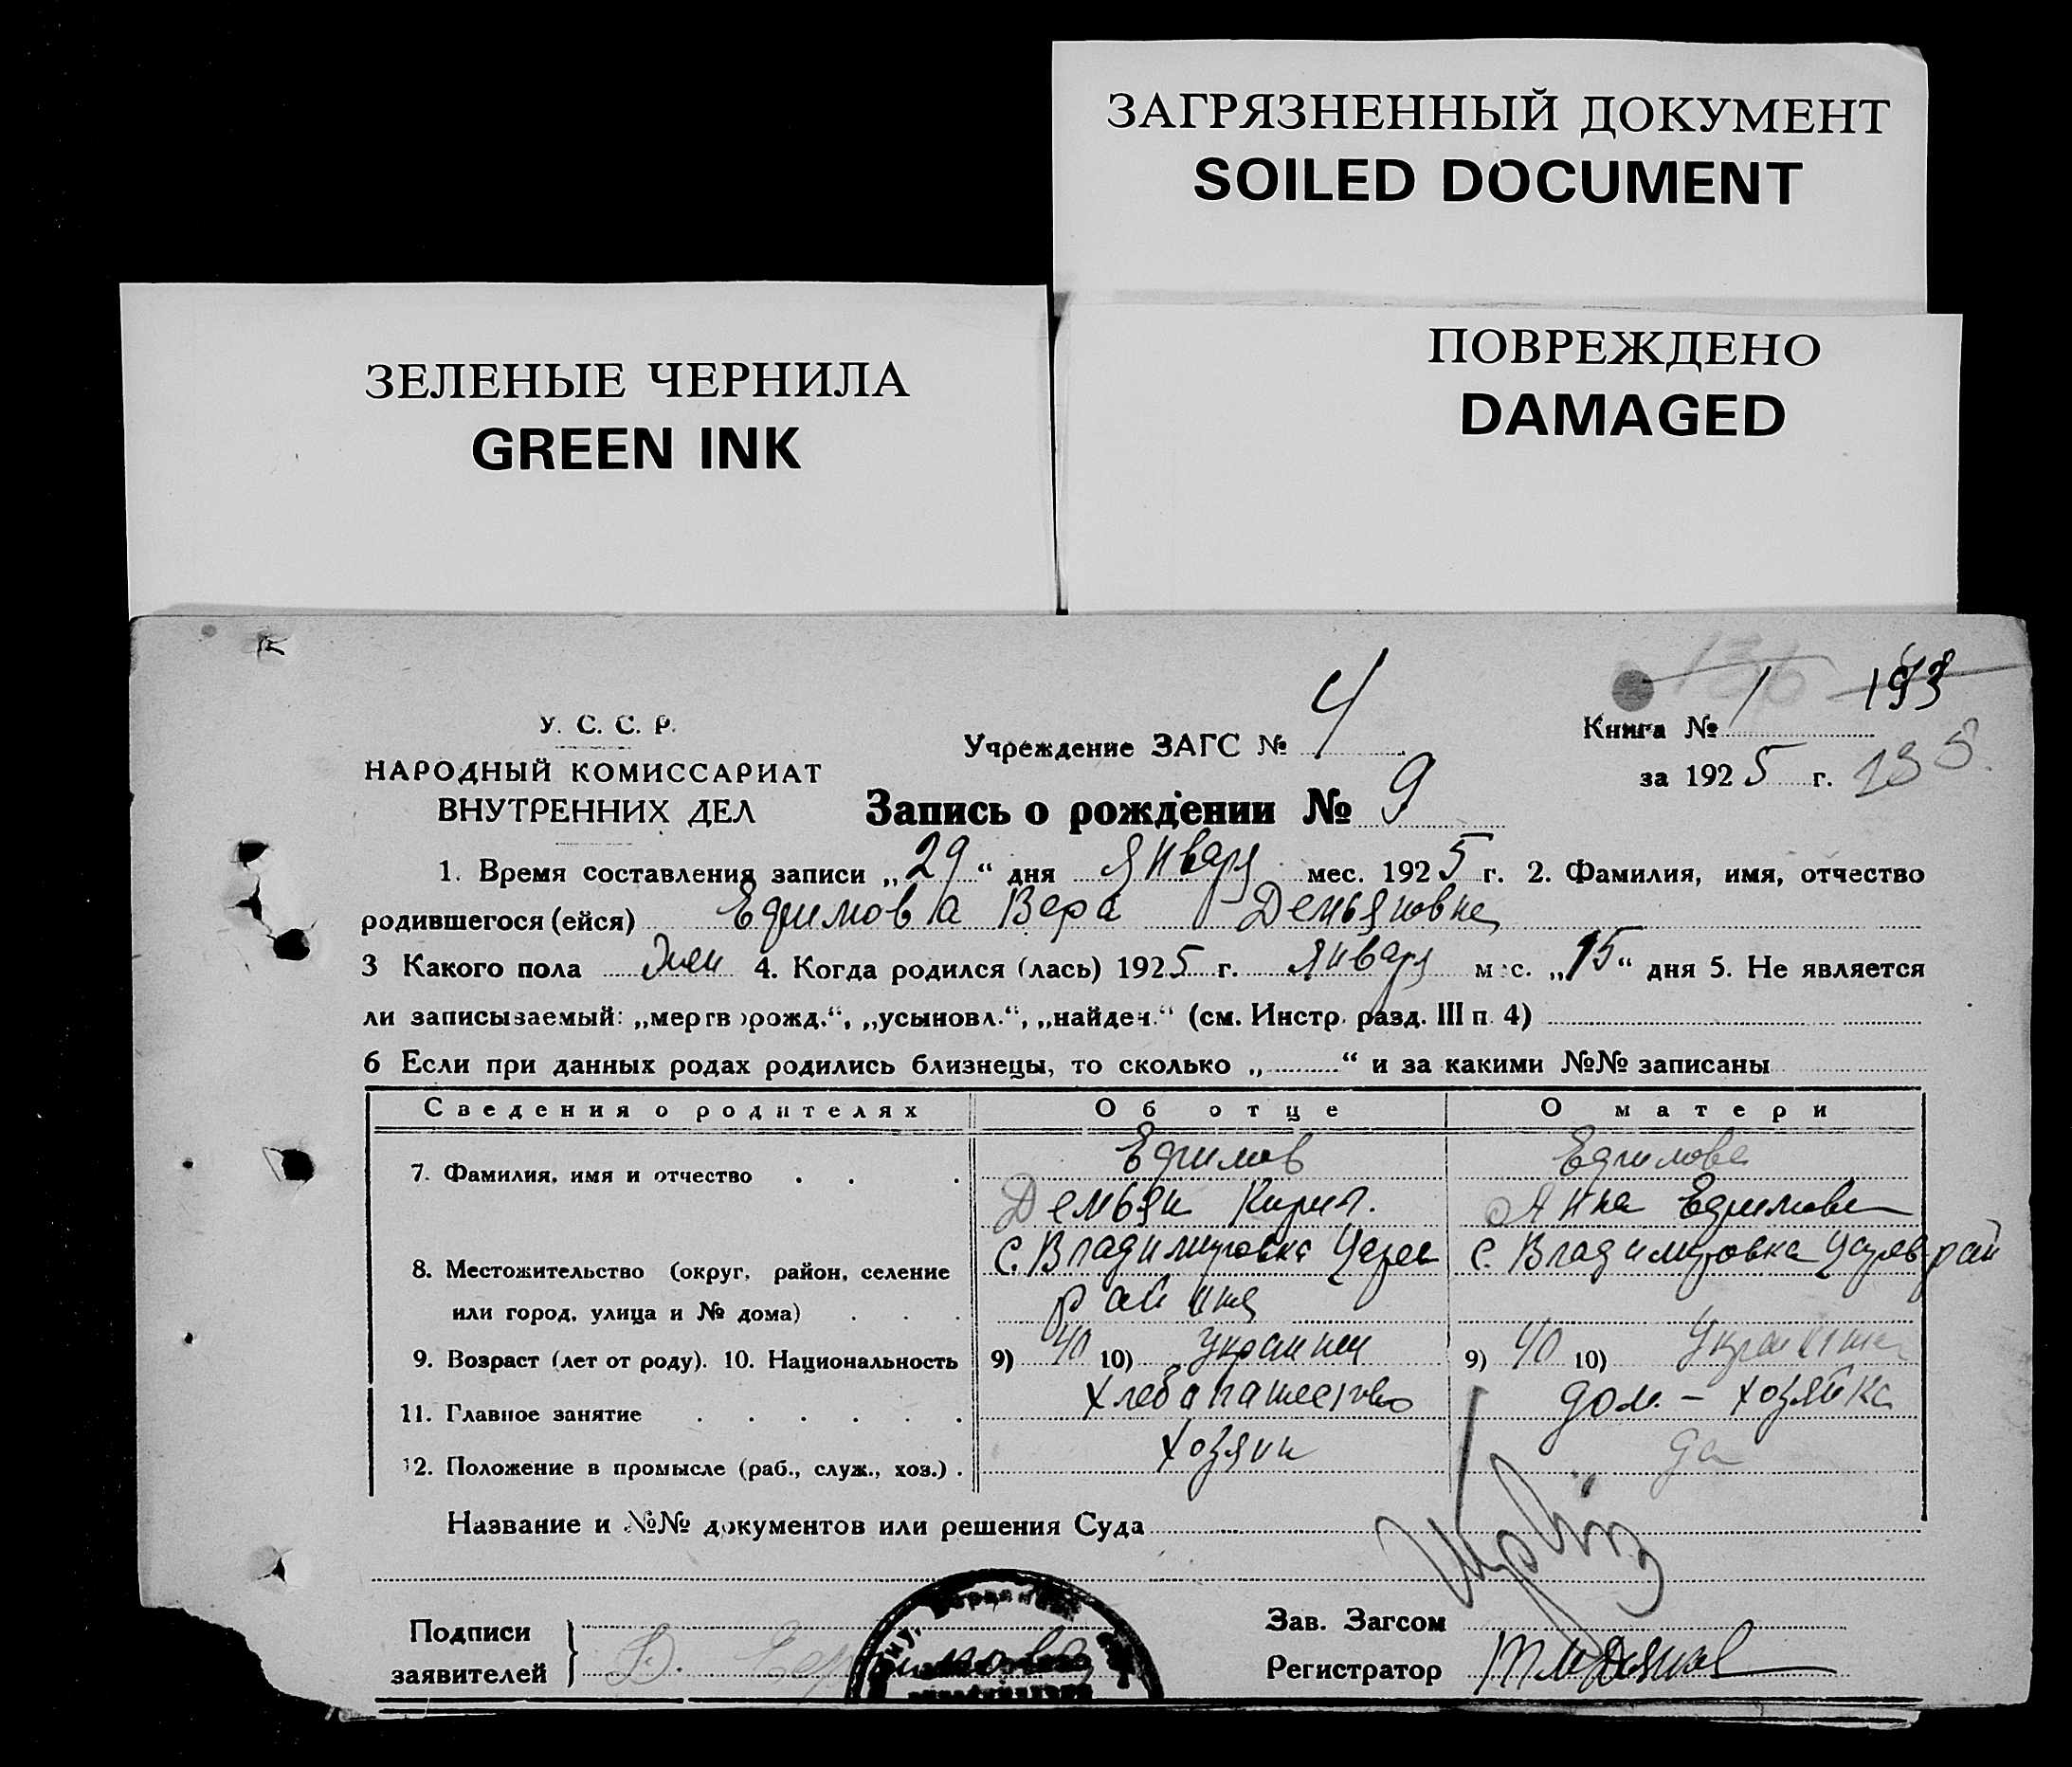 ЗАГРЯЗНЕННЫЙ ДОКУМЕНТ
SOILED DOCUMENT
ПОВРЕЖДЕНО
DAMAGED
ЗЕЛЕНЫЕ ЧЕРНИЛА
GREEN INK
У. С. С. Р.
НАРОДНЫЙ КОМИССАРИАТ
ВНУТРЕННИХ ДЕЛ
Учреждение ЗАГС № 4
Книга № 1 193
за 1925 г. 138
Запись о рождении № 9
1. Время составления записи „29“ дня Января мес. 1925 г. 2. Фамилия, имя, отчество
родившегося (ейся) Ефимова Вера Демьяновна
3 Какого пола жен 4. Когда родился (лась) 1925 г. января мес. „15“ дня 5. Не является
ли записываемый: „мертворожд.“, „усыновл.“, „найден.“ (см. Инстр. разд. III п. 4)
6 Если при данных родах родились близнецы, то сколько „ “ и за какими №№ записаны
Сведения о родителях Об отце О матери
7. Фамилия, имя и отчество Ефимов Ефимова
Демьян Кирил. Анна Ефимовн
8. Местожительство (округ, район, селение с. Владимировка с. Владимировка
или город, улица и № дома) района
9. Возраст (лет от роду). 10. Национальность 9) 40 10) Украинец 9) 40 10) Украинка
11. Главное занятие хлебопашество дом. – хозяйка
12. Положение в промысле (раб., служ., хоз.) хозяин да
Название и №№ документов или решения Суда
Подписи
заявителей } Д. Ефимова
Зав. Загсом
Регистратор